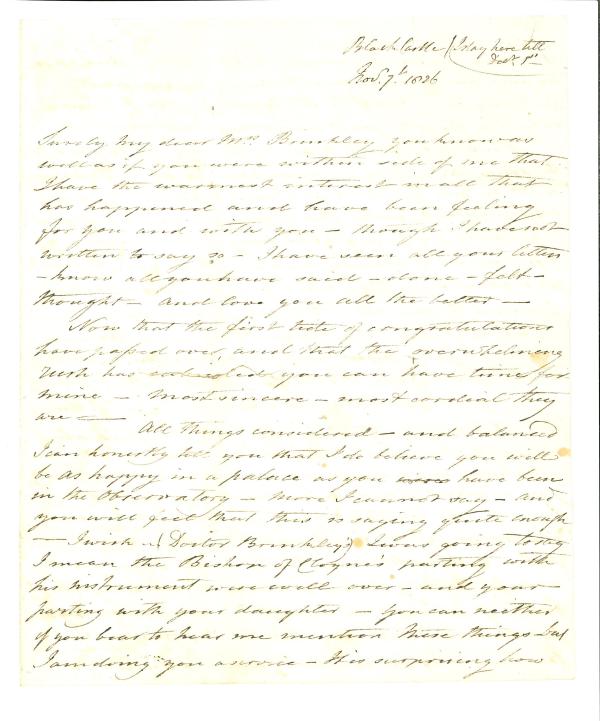 Black Castle / I stay here till
Decr. 1st
Novr. 7th 1826
Surely my dear Mrs. Brinkley you know as
well as if you were within side of me that
I have the warmest interest in all that
has happened and have been feeling
for you and with you – though I have not
written to say so – I have seen all your letters
– know all you have said – done – felt –
thought – and love you all the better –
Now that the first tide of congratulations
have passed over, and that the overwhelming
rush has you can have time for
mine – most sincere – most cordial they
are – All things considered – and balanced
I can honestly tell you that I do believe you will
be as happy in a palace as you were have been
in the Observatory – more I cannot say – and
you will feel that this is saying quite enough
– I wish Doctor Brinkleys I was going to say
I mean the Bishop of Cloyne's parting with
his instrument were well over – and your
parting with your daughter – you can neither
of you bear to hear me mention these things but
I am doing you a service – It is surprising how